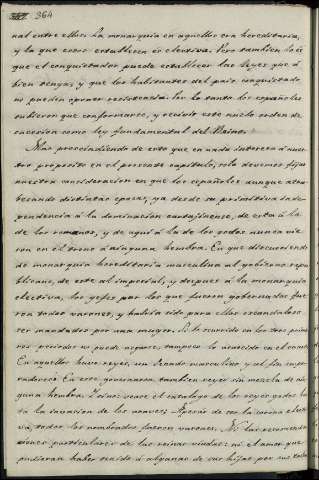 364
nal entre ellos la monarquia en aquellos era hereditaria,
y la que estos establecen es electiva. Pero tambien lo es
que el conquistador puede establecer las leyes que á
bien tenga, y que los habitantes del pais conquistado
no pueden oponer resistencia. Por lo tanto los españoles
tuvieron que conformarse, y recivir este nuevo orden de
sucesion como ley fundamental del Reino.
Mas, prescindiendo de esto que en nada interesa á nues
tro proposito en el presente capitulo, solo devemos fijar
nuestra consideracion en que los españoles aunque atra
besando distintas epocas, ya desde su primitiva inde
pendencia á la dominacion cartajinense, de esta á la
de los romanos, y de aqui á la de los godos nunca vie
ron en el trono á ninguna hembra. En que discurriendo
de monarquia hereditaria masculina al gobierno repu
blicano, de este al imperial, y despues á la monarquia
electiva, los gefes por los que fueron gobernados fue
ron todos varones, y habria sido para ellos escandaloso
ser mandados por una muger. Si lo ocurrido en los tres prime
ros periodos no puede negarse, tampoco lo acaecido en el cuarto.
En aquellos huvo reyes, un Senado masculino, y al fin empe
radores. En este governaron tambien reyes sin mezcla de nin
guna hembra. Lease sino el catalogo de los reyes godos has
ta la invasion de los moros. Apesar de ser la corona electi
va, todos los nombrados fueron varones. Ni las recomenda
ciones particulares de las reinas viudas: ni el amor que
pudieran haber tenido á algunas de sus hijas por sus